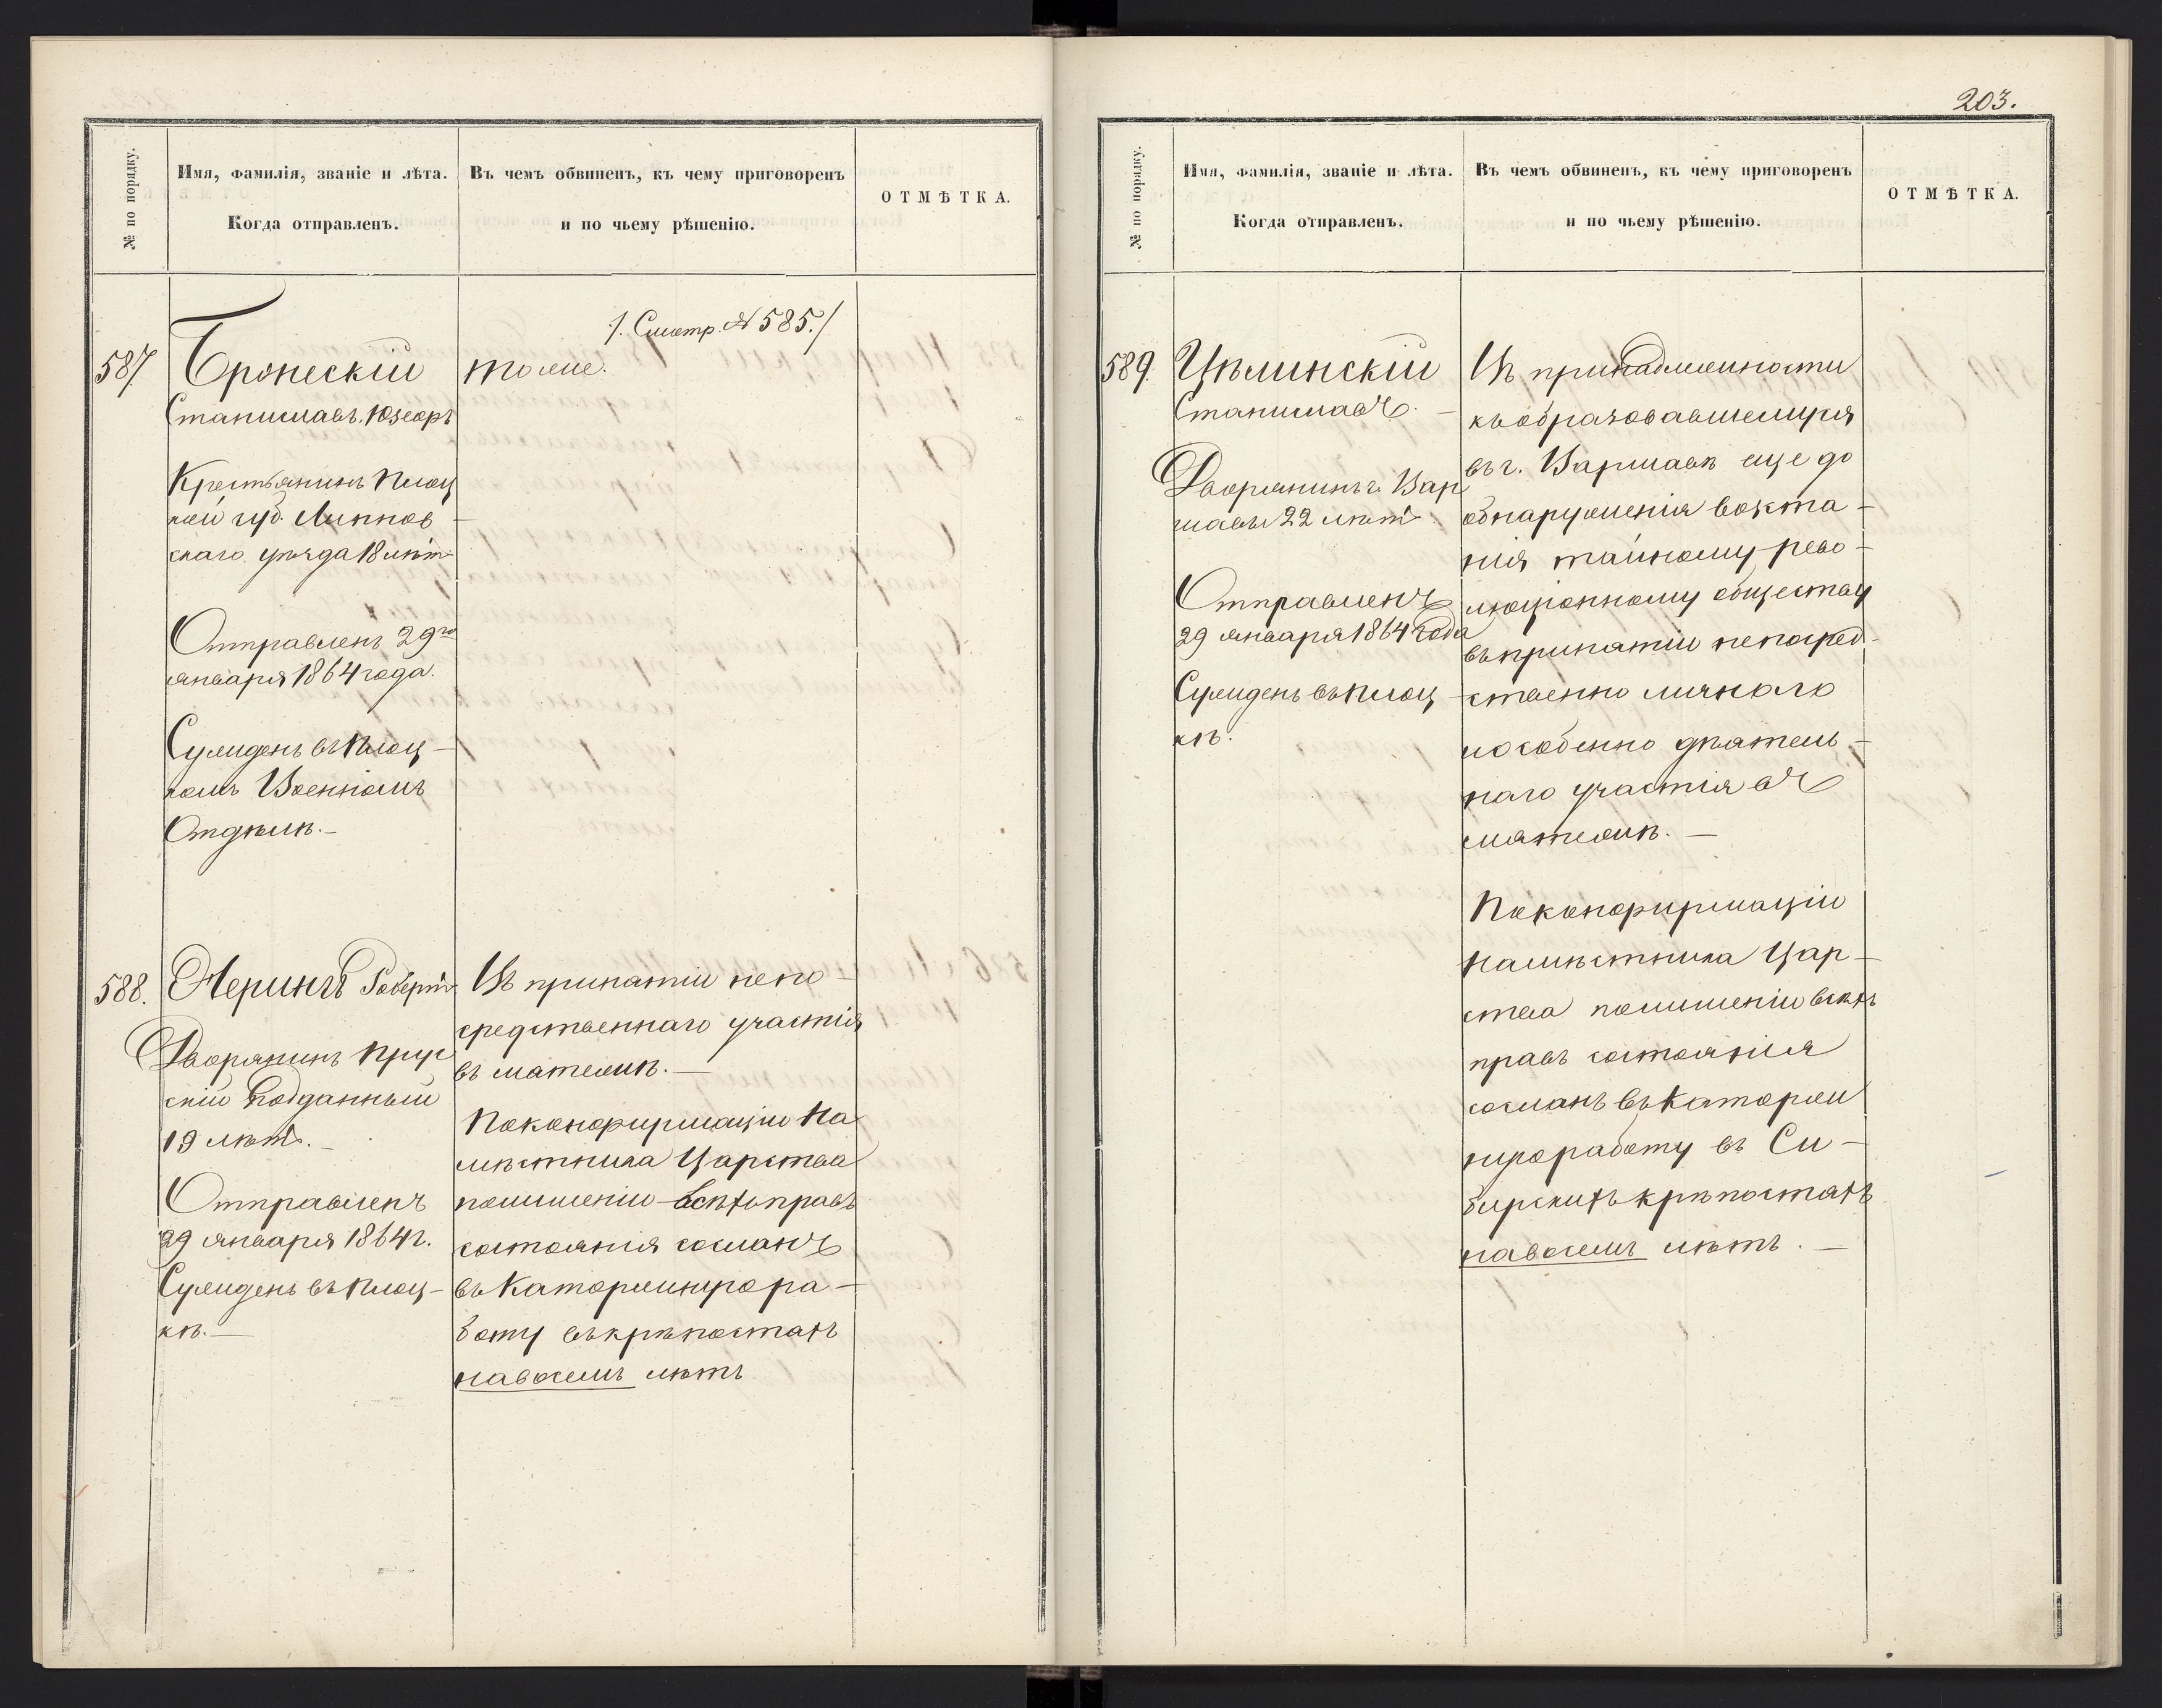 № по порядку.
Имя, фамилія, званіе и лѣта.
Когда отправленъ.
Въ чемъ обвиненъ, къ чему приговоренъ
и по чьему рѣшенію.
ОТМѢТКА.
587
Бронескій
Станиславъ Юзефъ
Крестьянинъ Плоц
кой губ. Липнов-
скаго уѣзда 18 лѣтъ
Отправленъ 29го
января 1864 года.
Сужденъ въ Плоц-
комъ Военномъ
Отдѣлѣ.-
/. Смотр. № 585./
тоже.
588.
Нерингъ Робертъ
Дворянинъ Прус
скій подданный
19 лѣтъ.-
Отправленъ
29 января 1864 г.
Сужденъ въ Плоц-
кѣ.-
Въ принятіи непо-
средственнаго участія
въ мятежѣ.-
По конфирмаціи На
мѣстника Царства
по лишеніи всѣхъ правъ
состоянія сосланъ
въ Каторжную ра-
боту въ крѣпостяхъ
на восемь лѣтъ
203.
№ по порядку.
Имя, фамилія, званіе и лѣта.
Когда отправленъ.
Въ чемъ обвиненъ, къ чему приговоренъ
и по чьему рѣшенію.
ОТМѢТКА.
589.
Цѣлинскій
Станиславъ.-
Дворянинъ г. Вар
шавы 22 лѣтъ.
Отправленъ
29 января 1864 года
Сужденъ въ Плоц-
кѣ.
Въ принадлежности
къ образовавшемуся
въ г. Варшавѣ еще до
обнаруженія возста-
нія тайному рево-
люціонному обществу
въ принятіи непосред-
ственно личнаго
и особенно дѣятель-
наго участія въ
мятежѣ.-
По конфирмаціи
Намѣстника Цар-
ства по лишеніи всѣхъ
правъ состоянія
сосланъ въ Каторж
ную работу въ Си-
бирскихъ крѣпостяхъ
на восемь лѣтъ.-